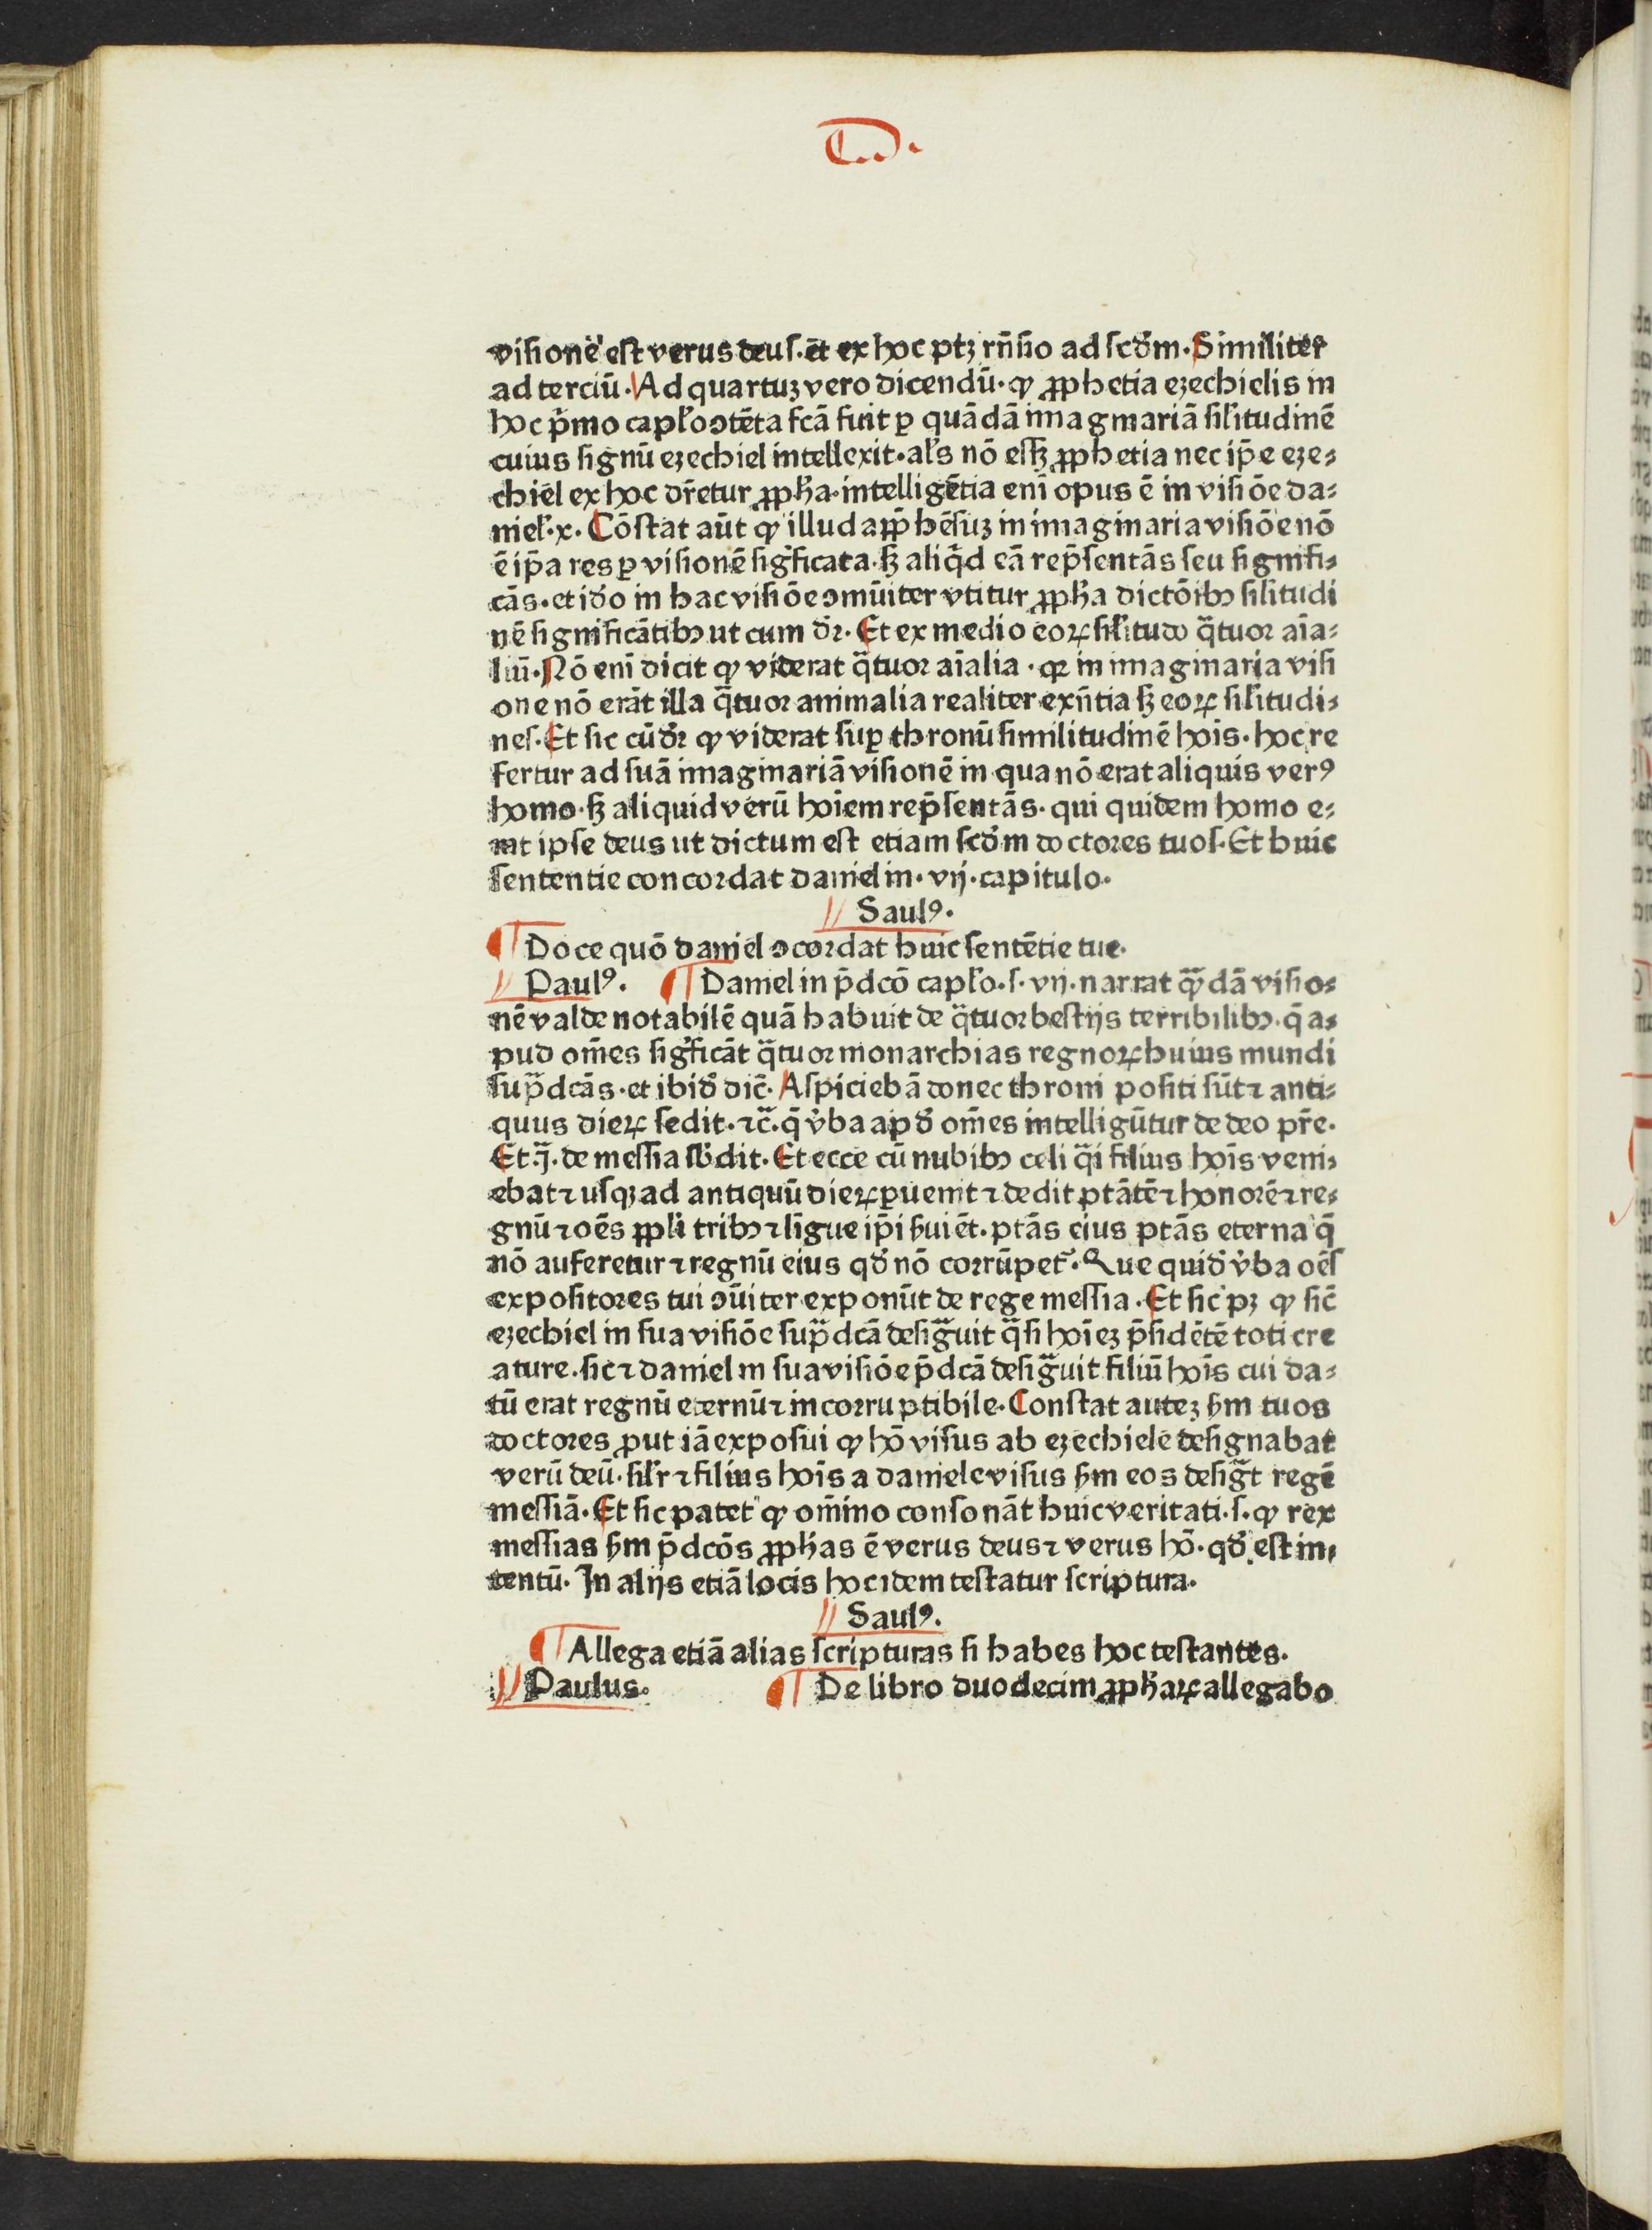 visionē est verus deus. et ex hoc ptꝫ rn̄sio ad scd̓m. Similiter
ad terciū. Ad quartuꝫ vero dicendū. ꝙ ꝓphetia ezechielis in
hoc p̓mo capło ↄtēta fcā fuit ꝑ quādā imaginariā siłitudinē
cuius signū ezechiel intellexit. ałs nō essꝫ ꝓphetia nec ip̄e eze⸗
chiel ex hoc dr̄etur ꝓpħa. intelligētia enī opus ē in visiōe da⸗
niel̓. x. Cōstat aūt ꝙ illud app̄hēsuꝫ in imaginaria visiōe nō
ē ip̄a res ꝑ visionē sig̓ficata. sꝫ aliq̓d eā rep̄sentās seu signifi⸗
cās. et id̓o in hac visiōe ↄmūiter vtitur ꝓpħa dictōibꝰ silitudi
nē significātibꝰ ut cum d̓r. Et ex medio eoꝝ siłitudo q̄tuor aīa⸗
liū. Nō enī dicit ꝙ viderat q̄tuor aīalia. qꝛ in imaginaria visi
one nō erāt illa q̄tuor animalia realiter exn̄tia sꝫ eoꝝ siłitudi⸗
nes. Et sic cū d̓r ꝙ viderat suꝑ thronū similitudinē hoīs. hoc re
fertur ad suā imaginariā visionē in qua nō erat aliquis verꝰ
homo. sꝫ aliquid verū hoīem rep̄sentās. qui quidem homo e⸗
rat ipse deus ut dictum est etiam scd̓m doctores tuos. Et huic
sententie concordat daniel in. vij. capitulo.
Saulꝰ.
Doce quō daniel ↄcordat huic sentētie tue.
Paulꝰ. Daniel in p̄dcō capło. s. vij. narrat qᷓdā visio⸗
nē valde notabilē quā habuit de q̄tuor bestijs terribilibꝰ. q̄ a⸗
pud om̄es sig̓ficāt q̄tuor monarchias regnoꝝ huius mundi
supᷓdcās. et ibid̓ dic̄. Aspiciebā donec throni positi sūt ⁊ anti⸗
quus dieꝝ sedit. ⁊c̄. q̄ v̓ba apd̓ om̄es intelligūtur de deo pr̄e.
Et ꝗ̄. de messia sb̓dit. Et ecce cū nubibꝰ celi qᷓi filius hoīs veni⸗
ebat ⁊ usqꝫ ad antiquū dieꝝ ꝑuenit ⁊ dedit ptātē ⁊ honorē ⁊ re⸗
gnū ⁊ oēs ꝓpli tribꝰ ⁊ līgue ip̄i ẜuiēt. ptās eius ptās eterna q̄
nō auferetur ⁊ regnū eius qd̓ nō corrūpet̓. Que quid̓ v̓ba oēs
expositores tui ↄūiter exponūt de rege messia. Et sic pꝫ ꝙ sic̄
ezechiel in sua visiōe supᷓdcā desigᷓuit qᷓsi hoīeꝫ p̄sidētē toti cre
ature. sic ⁊ daniel in sua visiōe p̄dcā desigᷓuit filiū hoīs cui da⸗
tū erat regnū eternū ⁊ incorruptibile. Constat auteꝫ ẜm tuos
doctores ꝓut iā exposui ꝙ hō visus ab ezechiele designabat
verū deū. siłr ⁊ filius hoīs a daniele visus ẜm eos desigᷓt regē
messiā. Et sic patet ꝙ om̄ino consonāt huic veritati. s. ꝙ rex
messias ẜm p̄dcōs ꝓpħas ē verus deus ⁊ verus hō. qd̓ est in⸗
tentū. In alijs etiā locis hoc idem testatur scriptura.
Saulꝰ.
Allega etiā alias scripturas si habes hoc testantes.
Paulus. De libro duodecim ꝓpħaꝝ allegabo